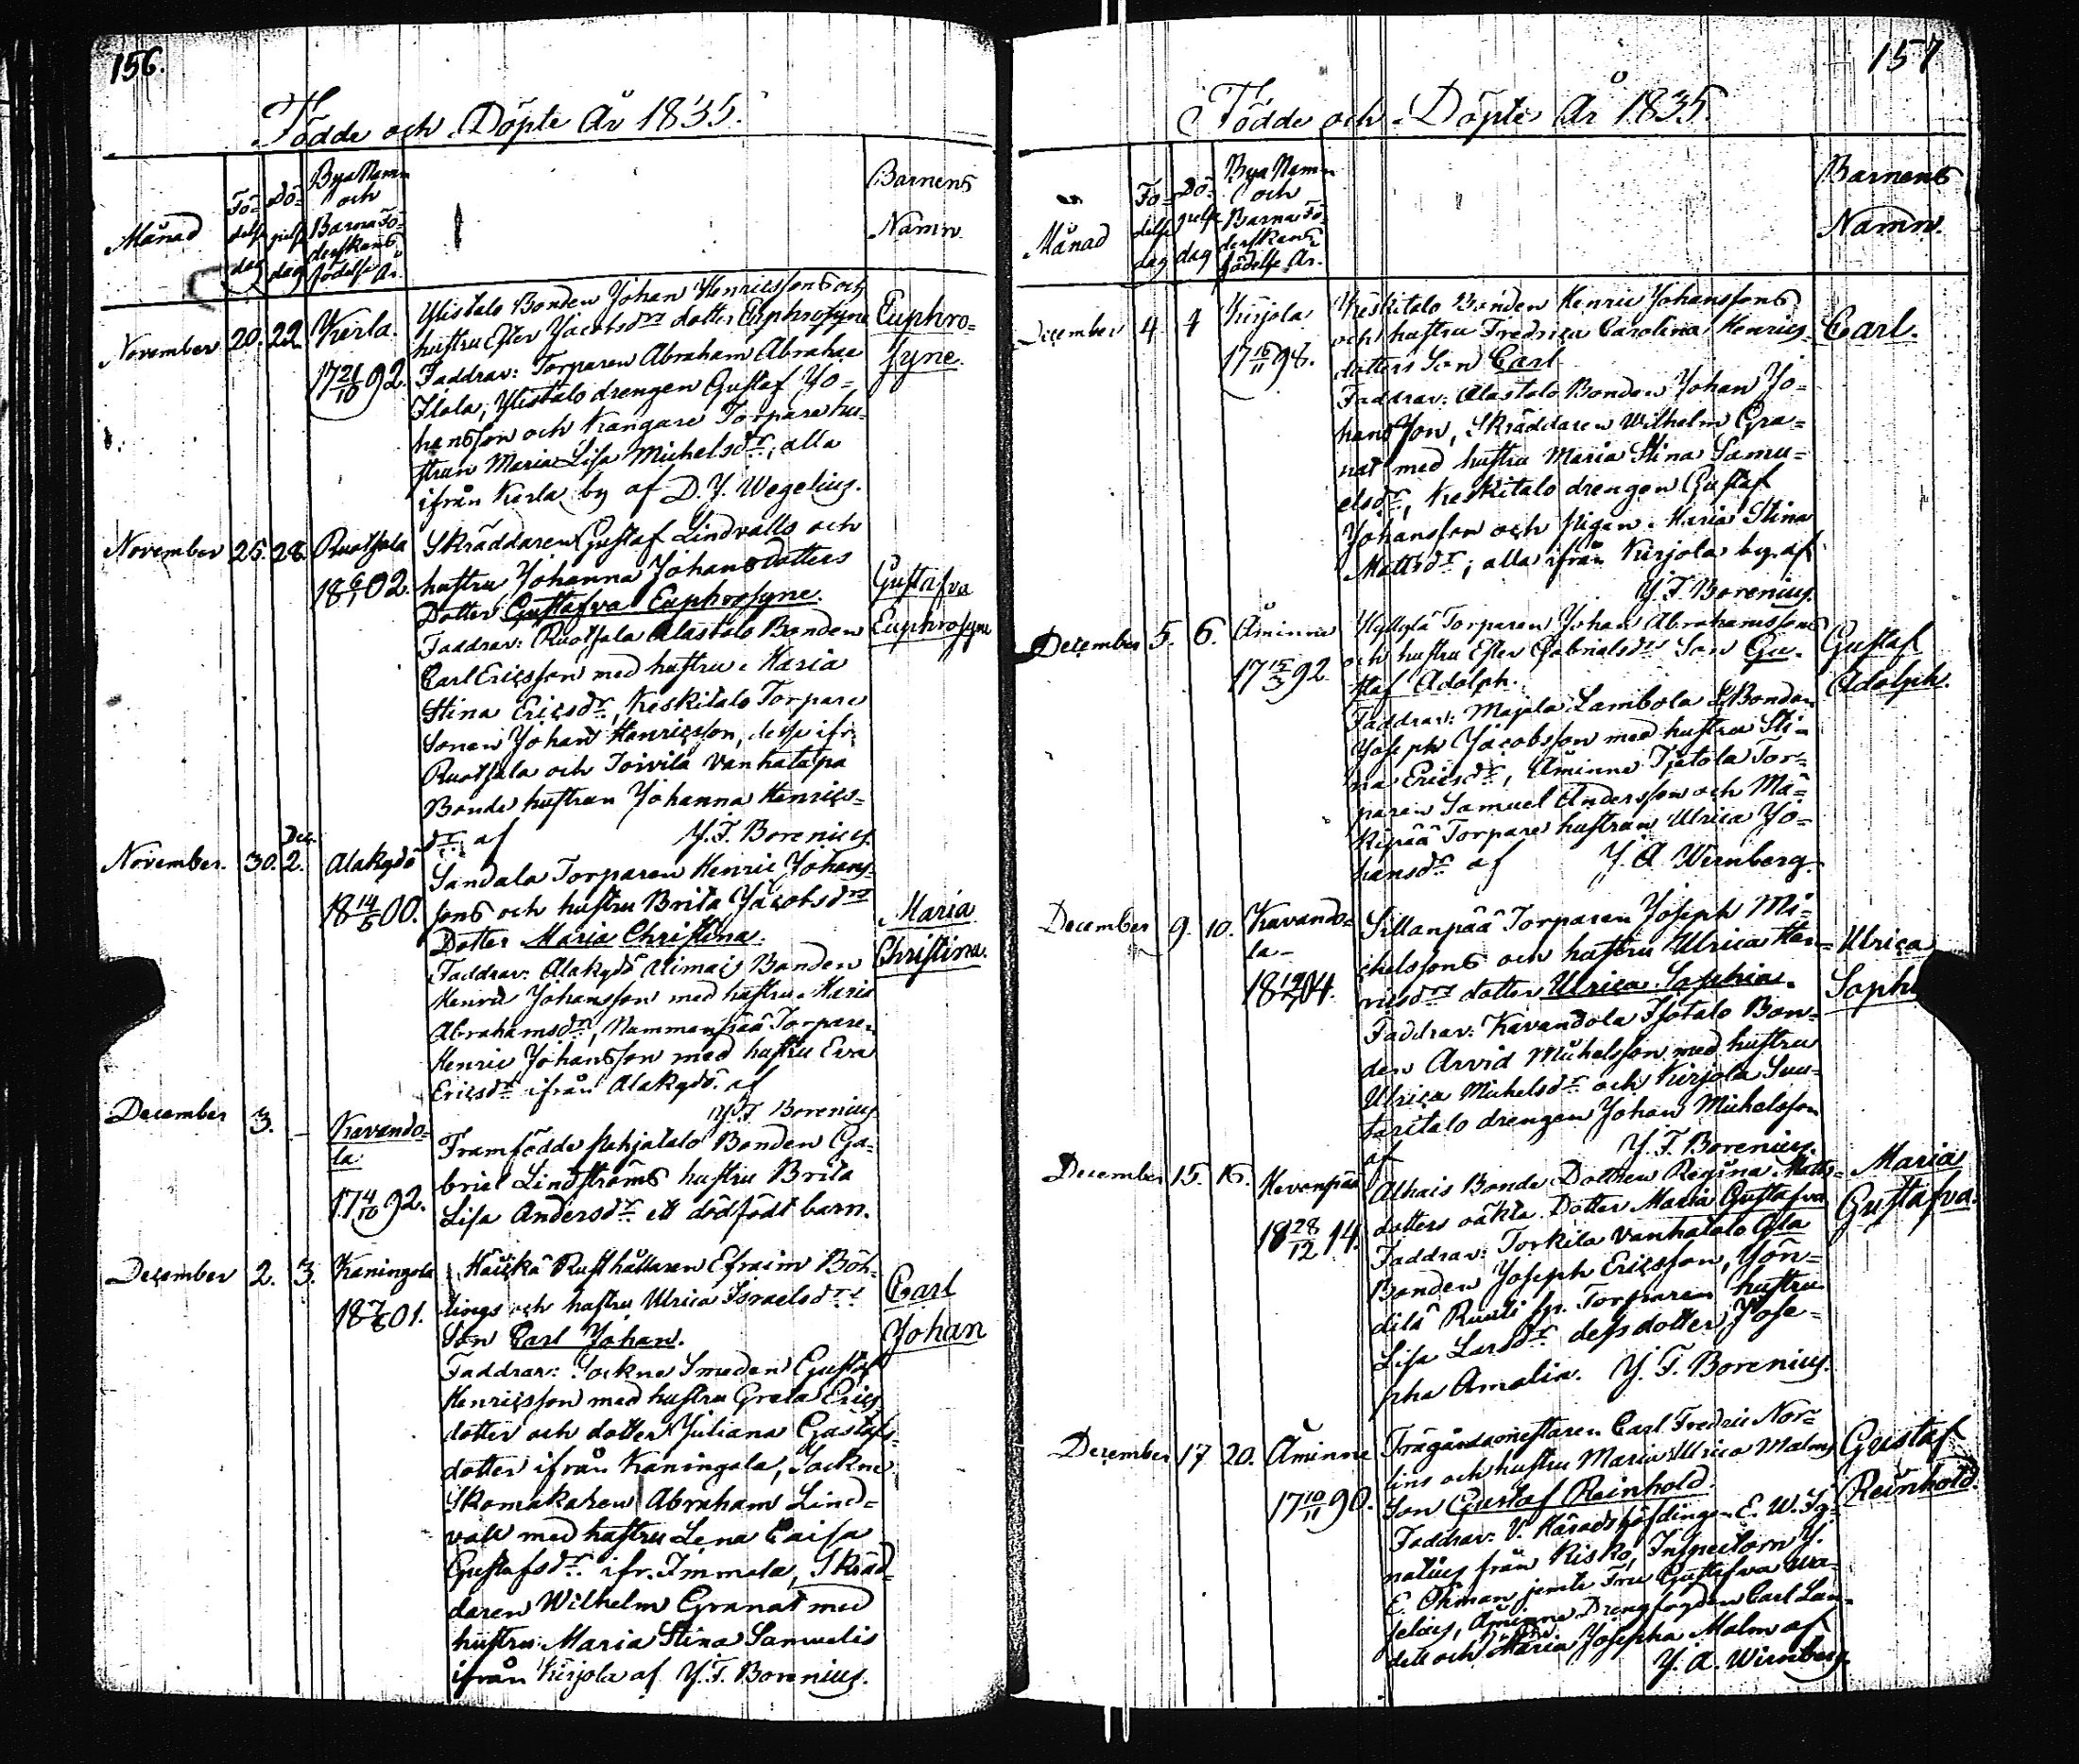 156.
Födde och Döpte År 1835.
Månad
Fö=
delse
dag
Dö=
pelse
dag
Bya Namn
och
Barna Fö=
derskans
födelse År
Barnens
Namn
November 20. 22 Kerla.
17 21/10 92.
Ylistalo Bonden Johan Henricssons och
hustru Ester Jacobsdrs dotter Euphrosyne
Faddrar: Torparen Abraham Abrahae
Ilola, Ylistalo drengen Gustaf Jo=
hansson och Kangare Torpare hu=
strun Maria Lisa Michelsdr, alla
ifrån Kerla by af D. J. Wegelius.
Euphro=
syne.
November 25. 28. Ruotsala
18 6/1 02.
Skräddaren Gustaf Lindvalls och
hustru Johanna Johansdotters
Dotter Gustafva Euphrosyne.
Faddrar: Ruotsala Alastalo Bonden
Carl Ericsson med hustru Maria
Stina Ericsdr, Keskitalo Torpare
Sonen Johan Henricsson, desse ifr.
Ruotsala och Toivila Vanhatalpa
Bonde hustrun Johanna Henrics=
dr. af J. F. Borenius.
Gustafva
Euphrosyne
November. 30. Dec. 2. Alakydö
18 14/6 00.
Sandala Torparen Henric Johans=
sons och hustru Brita Jacobsdrs
Dotter Maria Christina.
Faddrar: Alakydö Alimais Bonden
Henric Johansson med hustru Maria
Abrahamsdr, Nummenpää Torparen
Henric Johansson med hustru Eva
Ericsdr ifrån Alakydö. af
J. F. Borenius
Maria
Christina.
December 3. – Kavando=
la
17 4/10 92.
Framfödde Pahjatalo Bonden Ga=
briel Lindströms hustru Brita
Lisa Andersdr ett dödfödt barn.
December 2. 3. Kaningola
18 7/6 01.
Häickä Rusthållaren Efraim Böh=
lings och hustru Ulrica Israelsdrs
Son Carl Johan.
Faddrar: Sockne Smeden Gustaf
Henricsson med hustru Greta Erics
dotter och dotter Juliana Gustafs=
dotter ifrån Kaningola, Sockne
Skomakaren Abraham Lind=
vall med hustru Lena Caisa
Gustafsdr ifr. Immala, Skräd=
daren Wilhelm Granat med
hustru Maria Stina Samuelis
ifrån Kirjola af J. F. Borenius.
Carl
Johan
157
Födde och Döpte År 1835.
Månad
Fö=
delse
dag
Dö=
pelse
dag
Bya Namn
och
Barna Fö=
derskans
födelse År.
Barnens
Namn.
December 4 4 Kirjola
17 16/11 98.
Keskitalo Bonden Henric Johanssons
och hustru Fredrica Carolina Henrics=
dotters Son Carl
Faddrar: Alastalo Bonden Johan Jo=
hansson, Skräddaren Wilhelm Gra=
nat med hustru Maria Stina Samu=
elsdr, Keskitalo drengen Gustaf
Johansson och pigan Maria Stina
Mattsdr; alla ifrån Kirjola by af
J. F. Borenius.
Carl.
December 5. 6. Åminne
17 15/3 92
Kyllylä Torparen Johan Abrahamssons
och hustru Ester Gabrielsdrs Son Gu=
staf Adolph.
Faddrar: Majala Lambola Bonden
Joseph Jacobsson med hustru Sti=
na Ericsdr, Åminne Tjatola Tor=
paren Samuel Andersson och Mä=
kipää Torpare hustrun Ulrica Jo=
hansdr af J. A. Wirnberg.
Gustaf
Adolph.
December 9. 10. Kavando=
la
18 19/7 04.
Sillanpää Torparen Joseph Mi=
chelssons och hustru Ulrica Hen=
ricsdrs dotter Ulrica Sophia.
Faddrar: Kavandola Isotalo Bon=
den Arvid Michelsson med hustru
Ulrica Michelsdr och Kirjola Suu=
taritalo drengen Johan Michelsson
af J. F. Borenius.
Ulrica
Soph
December 15. 16. Hevonpää
18 28/12 14.
Alhais Bonde Dottren Regina Matts=
dotters oäkta Dotter Maria Gustafva
Faddrar: Torkila Vanhatalo
Bonden Joseph Ericsson, Jön=
dilä Rusti Torparen hustru
Lisa Larsdr dess dotter Jose=
pha Amalia. J. F. Borenius.
Maria
Gustafva.
December 17 20. Åminne
17 10/11 90.
Trägårdsmestaren Carl Fredric Nor=
lins och hustru Maria Ulrica Malms
Son Gustaf Reinhold.
Faddrar: V. Häradshöfdingen E. W. Ig=
natius från Risko, Inspectorn J.
E. Öhman jemte Fru Gustafva
selius, Åminne Drengfogden Carl Lan=
dell och Maria Josepha Malm af
J. A. Wirnberg.
Gustaf
Reinhold.